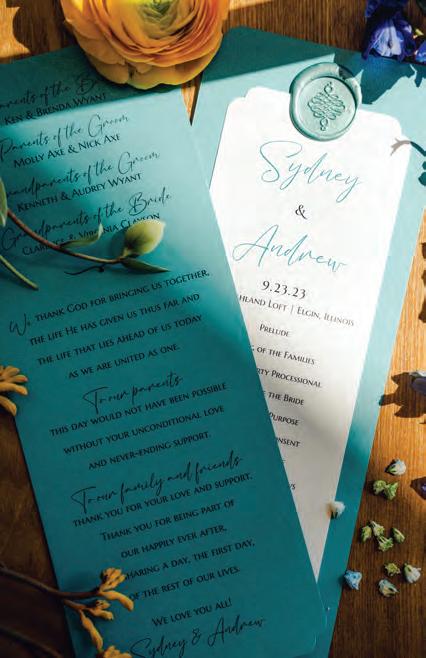 Parents of the
Ken & Brenda Wyant
Parents of the Groom
Molly Axe & Nick Axe
Grandparents of the Groom
Kenneth & Audrey Wyant
Grandparents of the Bride
& Virginia Clayson
We thank God for bringing us together,
the life He has given us thus far and
the life that lies ahead of us today
as we are united as one.
To our parents
this day would not have been possible
without your unconditional love
and never-ending support.
To our family and friends
thank you for your love and support.
Thank you for being part of
our happily ever after,
sharing a day, the first day,
of the rest of our lives.
We love you all!
Sydney & Andrew
Sydney
&
Andrew
9.23.23
Loft | Elgin, Illinois
Prelude
of the Families
Processional
the Bride
Purpose